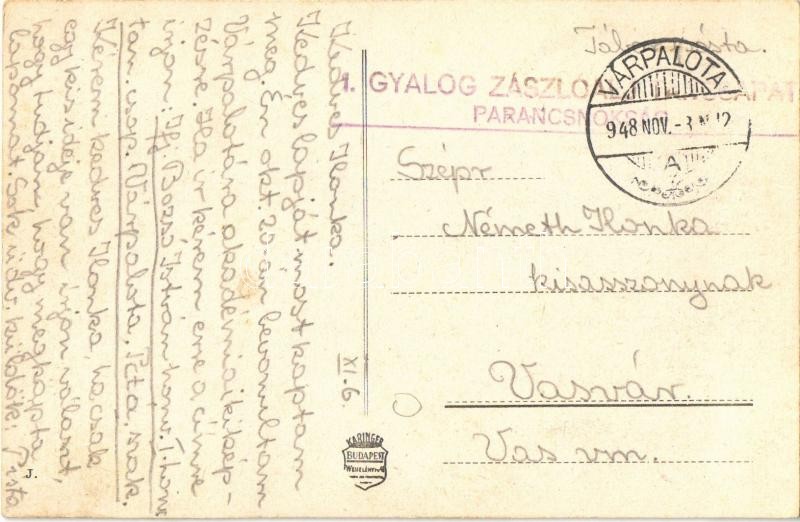 Kedves Ilonka.
Kedves lapját most kaptam
meg. Én okt. 20-án bevonultam
Várpalotára akadémiai kikép-
zésre. Ha ír kérem erre a címre
írjon: Ifj. Bozsó István honv. I. hon
tan. csop. Várpalota, Péta, szak.
Kérem kedves Ilonka, ha csak
egy kis ideje van írjon választ,
hogy tudjam, hogy megkapta
lapomat. Sok üdv. küldök: Pista
XI-6.
Tábori Posta.
1. GYALOG ZÁSZLÓALJ
PARANCSNOKSÁG
VÁRPALOTA
948 NOV. -3. 12
A
Szépr.
Németh Ilonka
kisasszonynak
Vasvár.
Vas vm.
KARINGER
BUDAPEST
J.